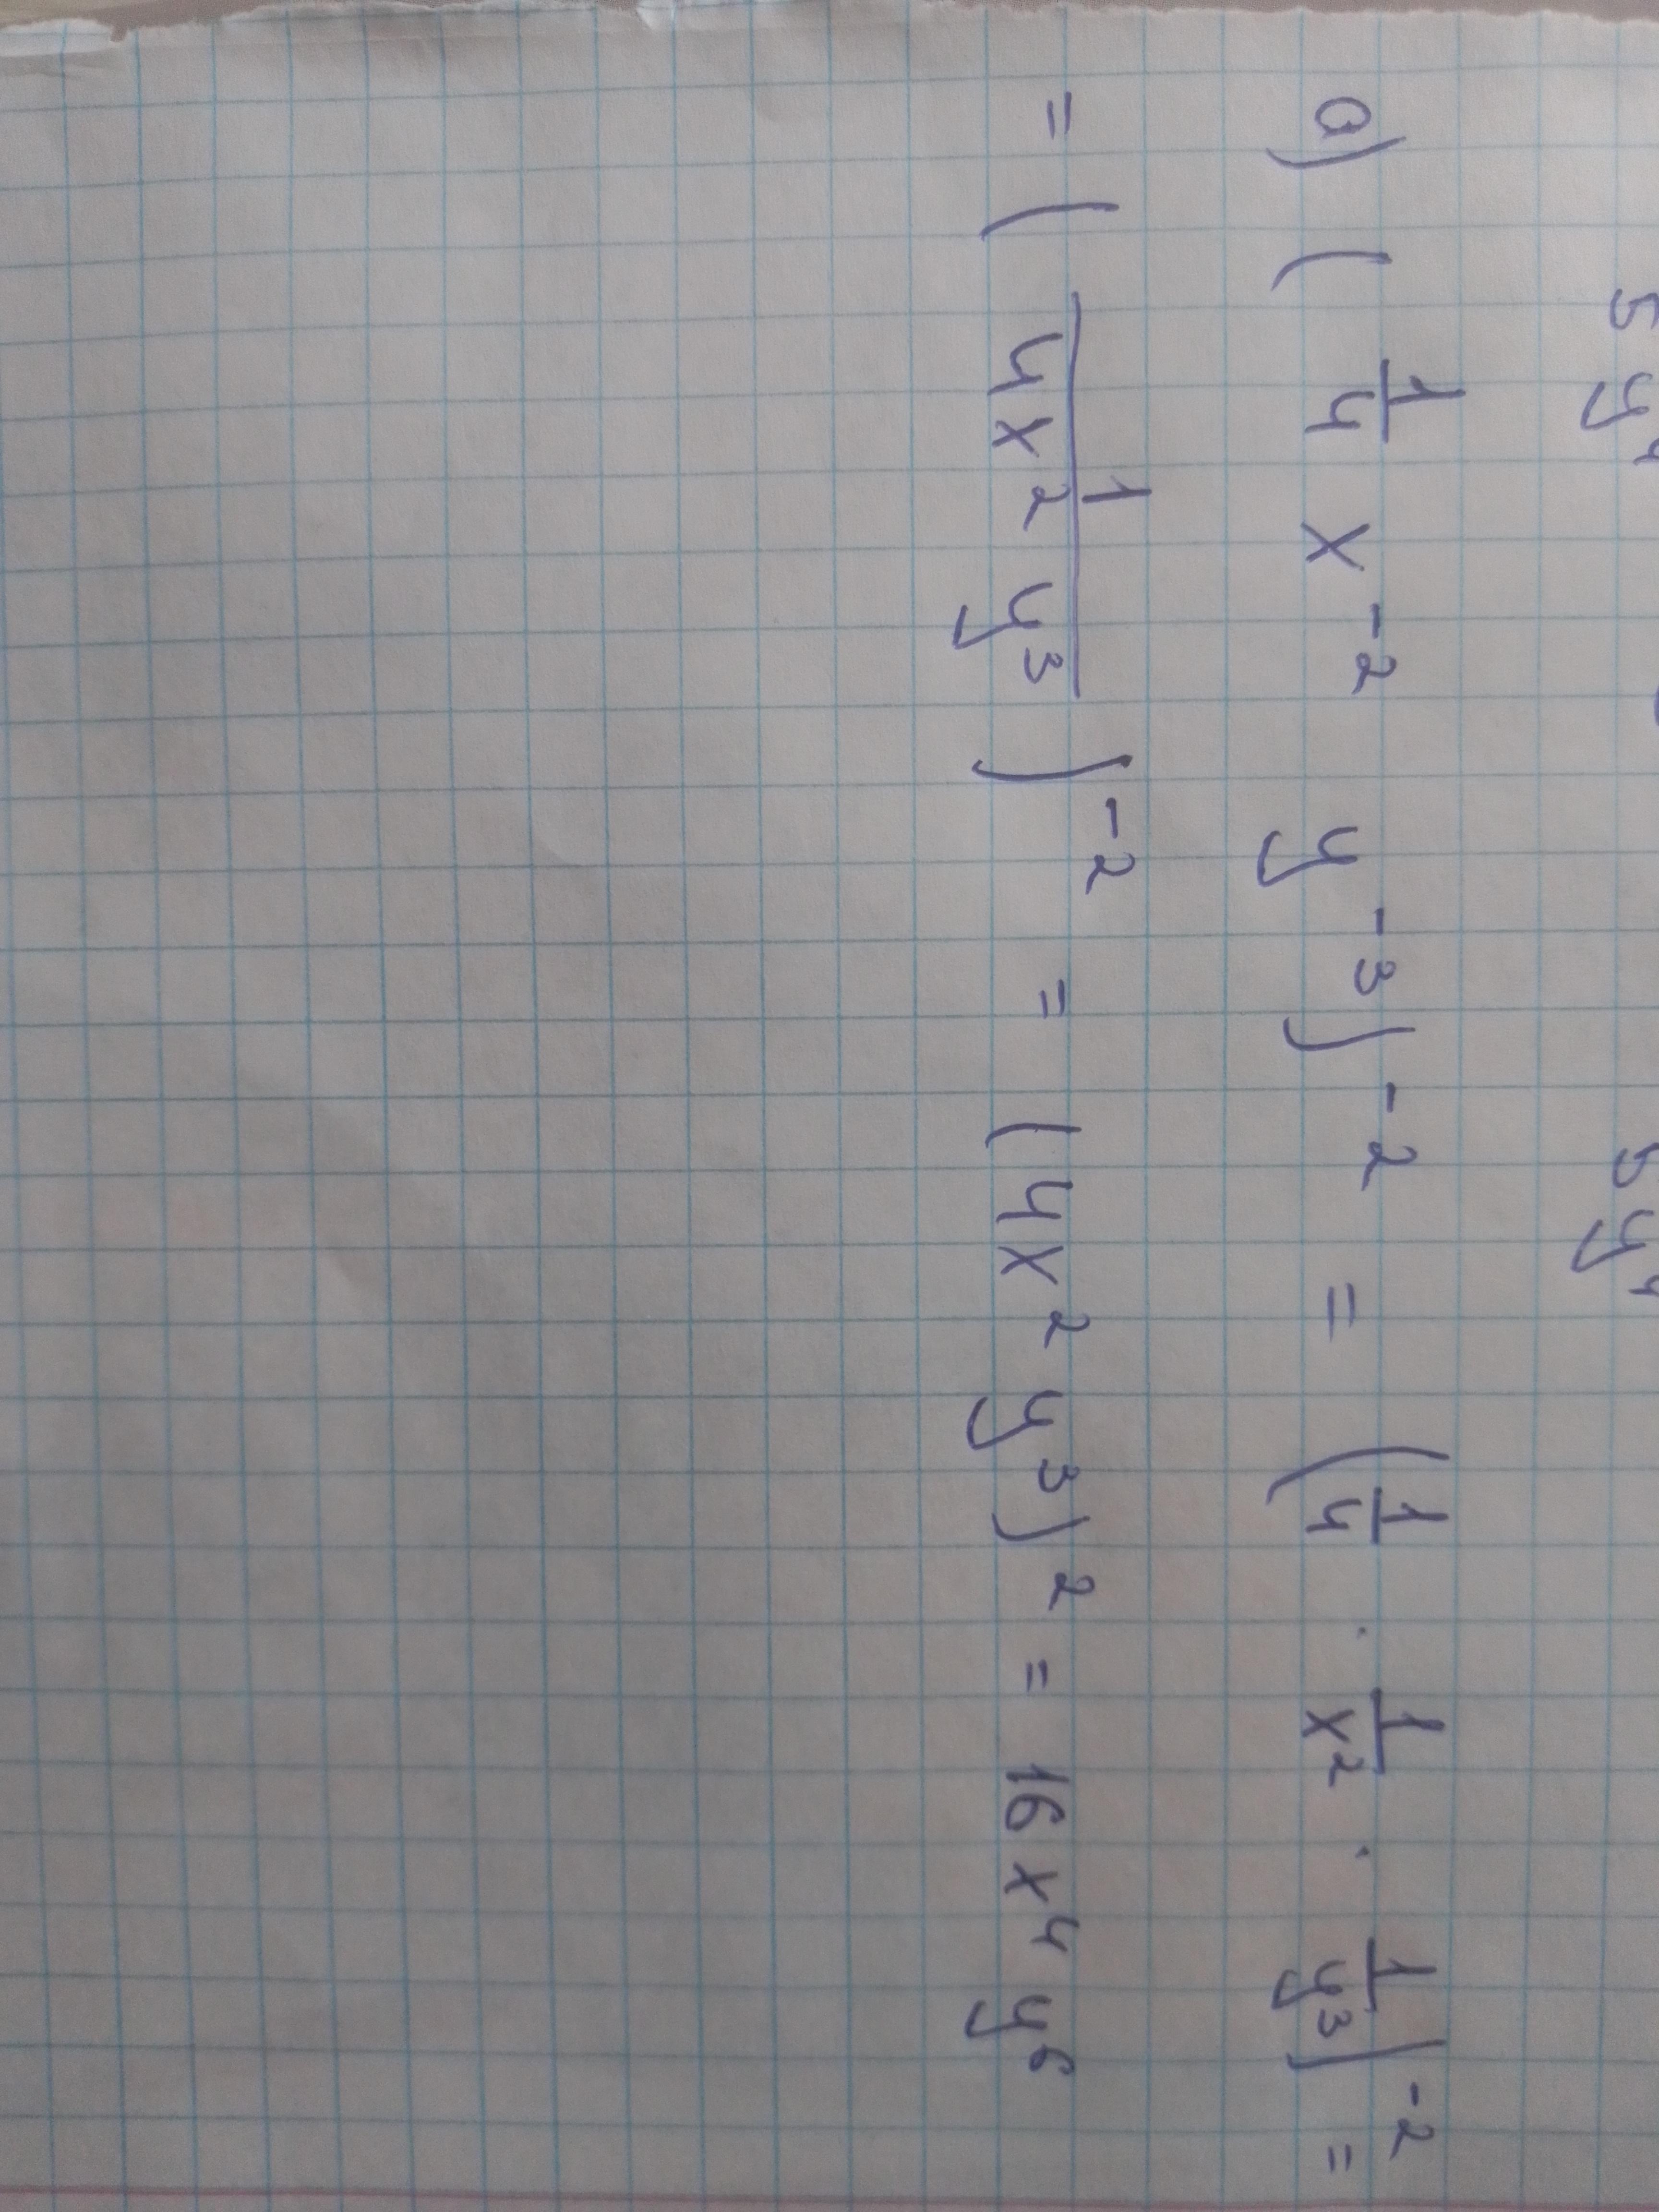 5y⁴ 5y⁴
a) (1/4 x⁻² y⁻³)⁻² = (1/4 · 1/x² · 1/y³)⁻² =
= (1/(4x²y³))⁻² = (4x²y³)² = 16x⁴y⁶